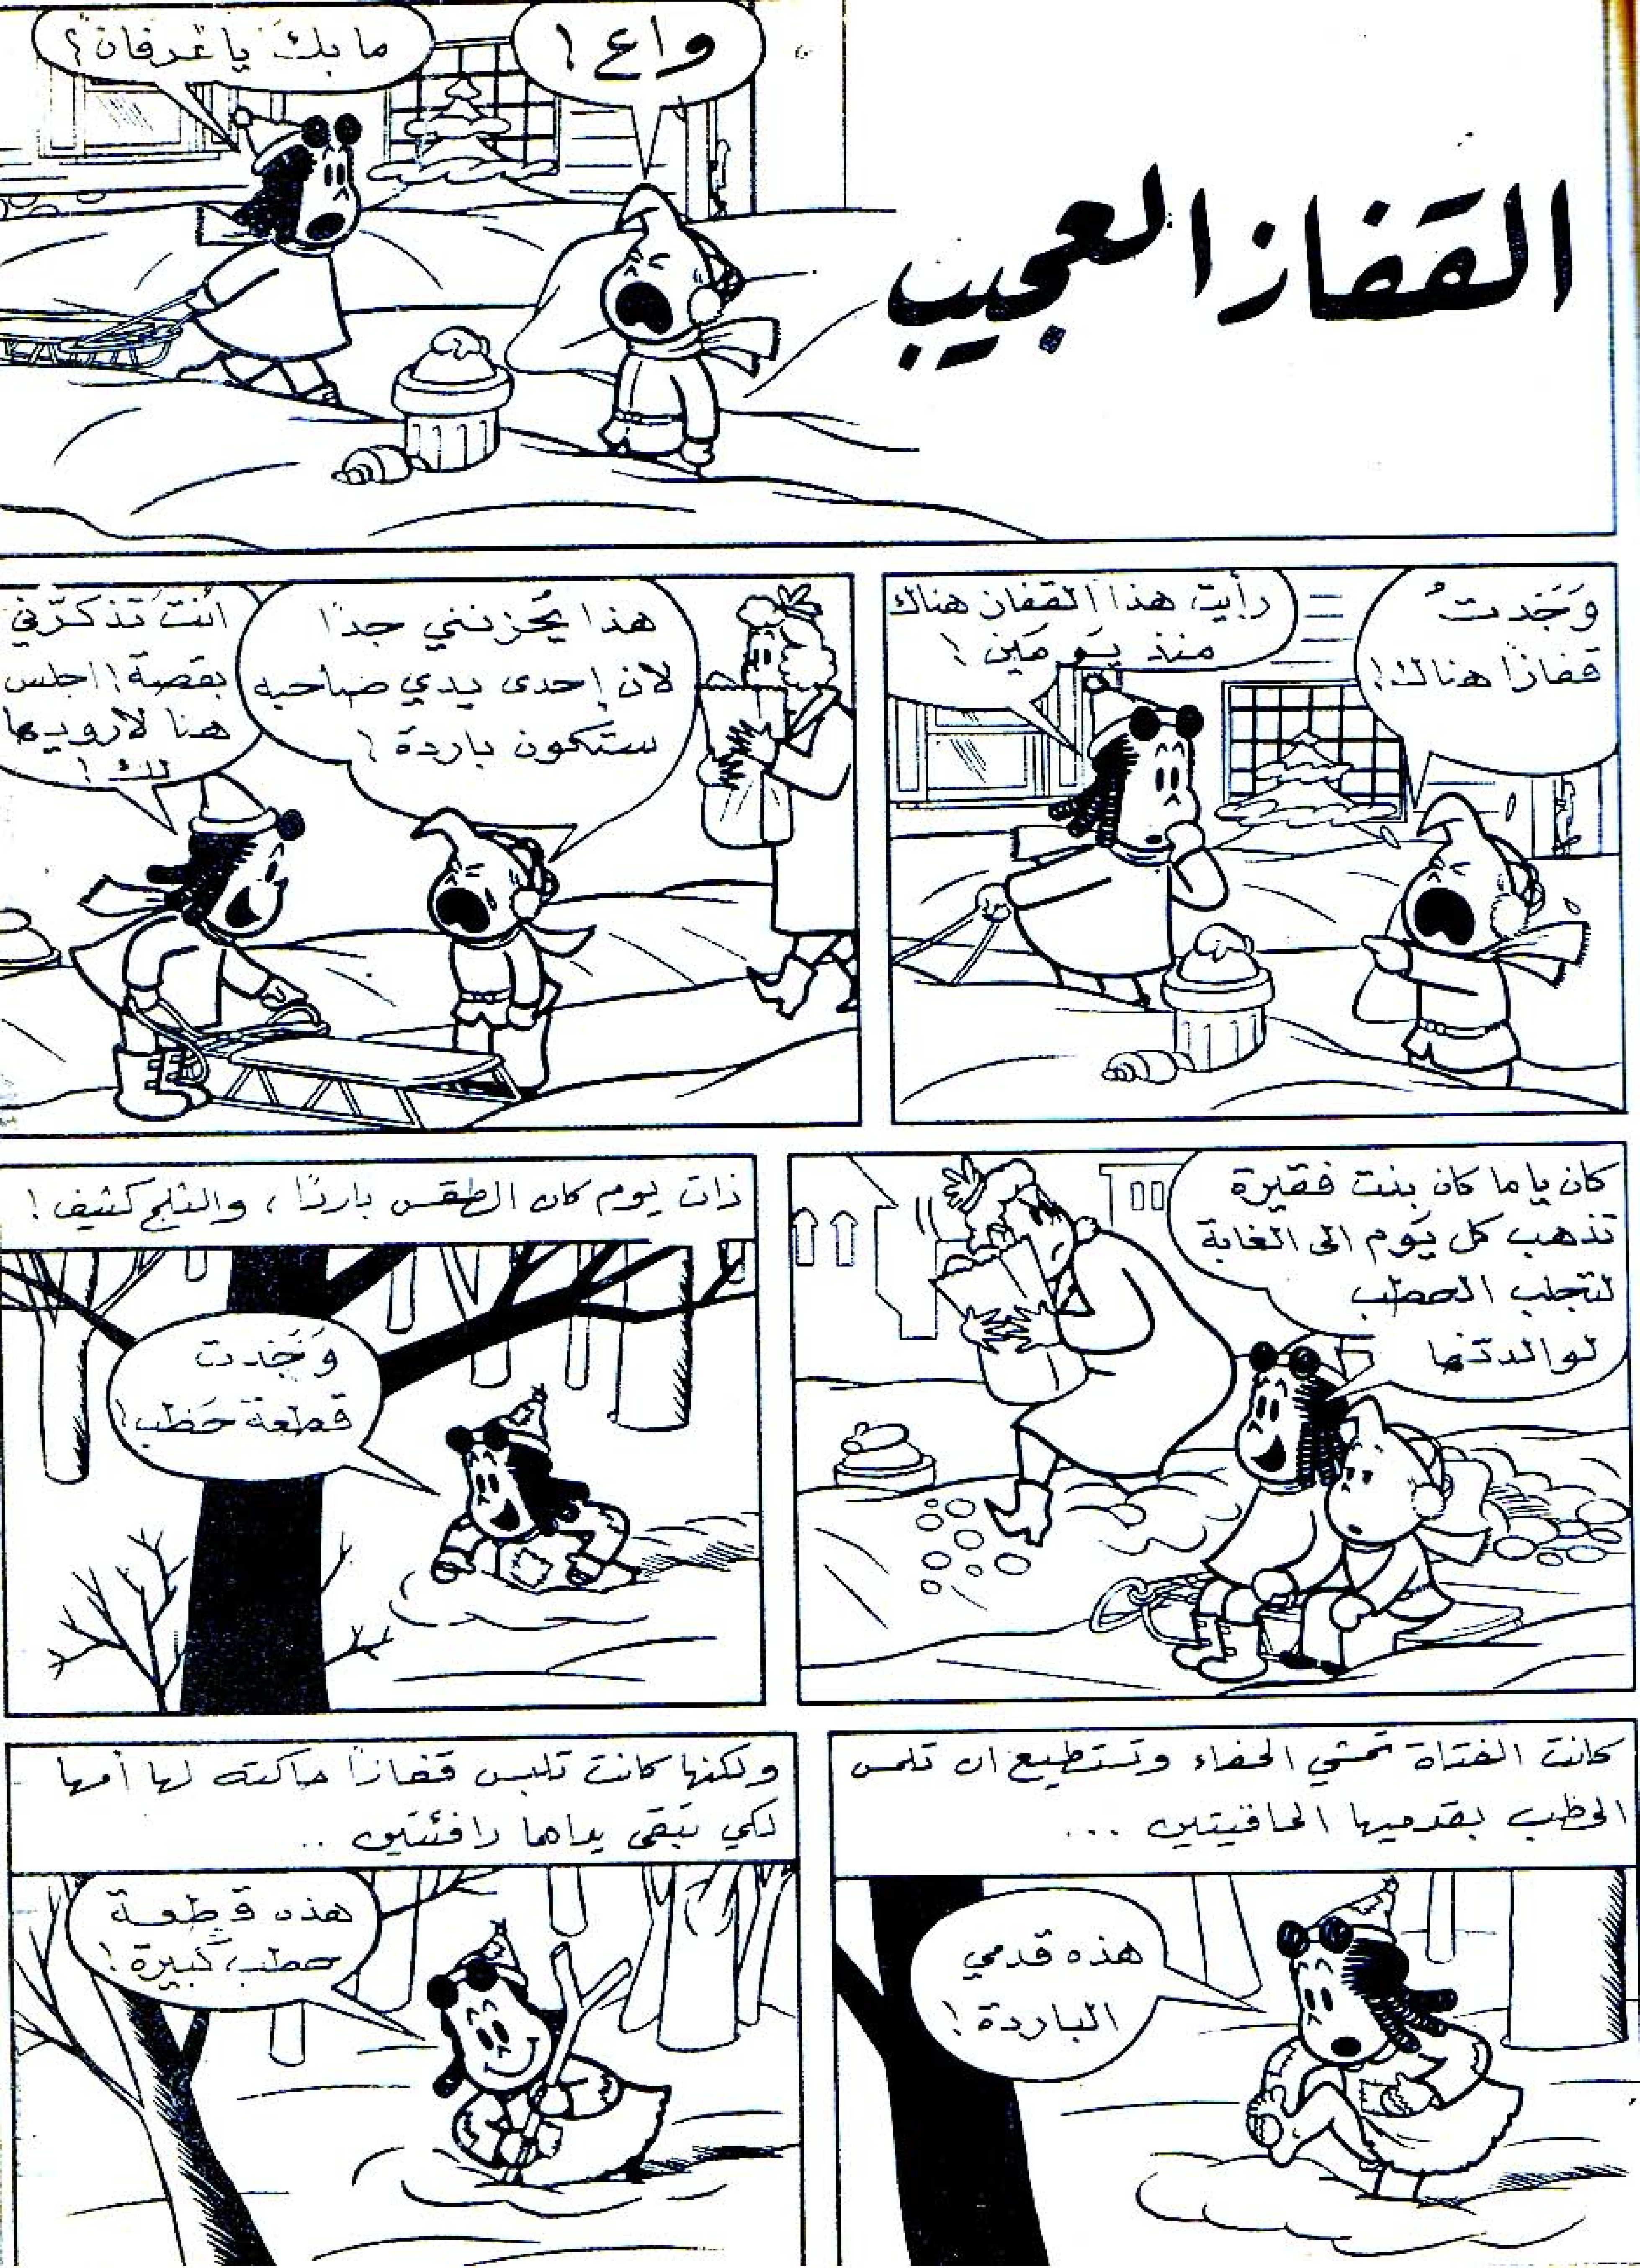 القفاز العجيب
واع!
ما بك يا عرفان؟
وَجَدتُ
قفازًا هناك!
رأيت هذا القفاز هناك
منذ يَومَين!
هذا يُحزنني جدًا
لان إحدى يدي صاحبه
ستكون باردة!
أنت تذكّرني
بقصة! اجلس
هنا لأرويها
لك!
كان ياما كان بنت فقيرة
تذهب كل يَوم الى الغابة
لتجلب الحطب
لوالدتها
ذات يوم كان الطقس باردًا، والثلج كثيف!
وَجَدت
قطعة حَطَب!
كانت الفتاة تمشي الحفاء وتستطيع ان تلمس
الحطب بقدميها الحافيتين ...
هذه قدمي
الباردة!
ولكنها كانت تلبس قفازًا حاكته لها أمها
لكي تبقى يداها دافئتين ..
هذه قطعة
حطب كَبيرة!